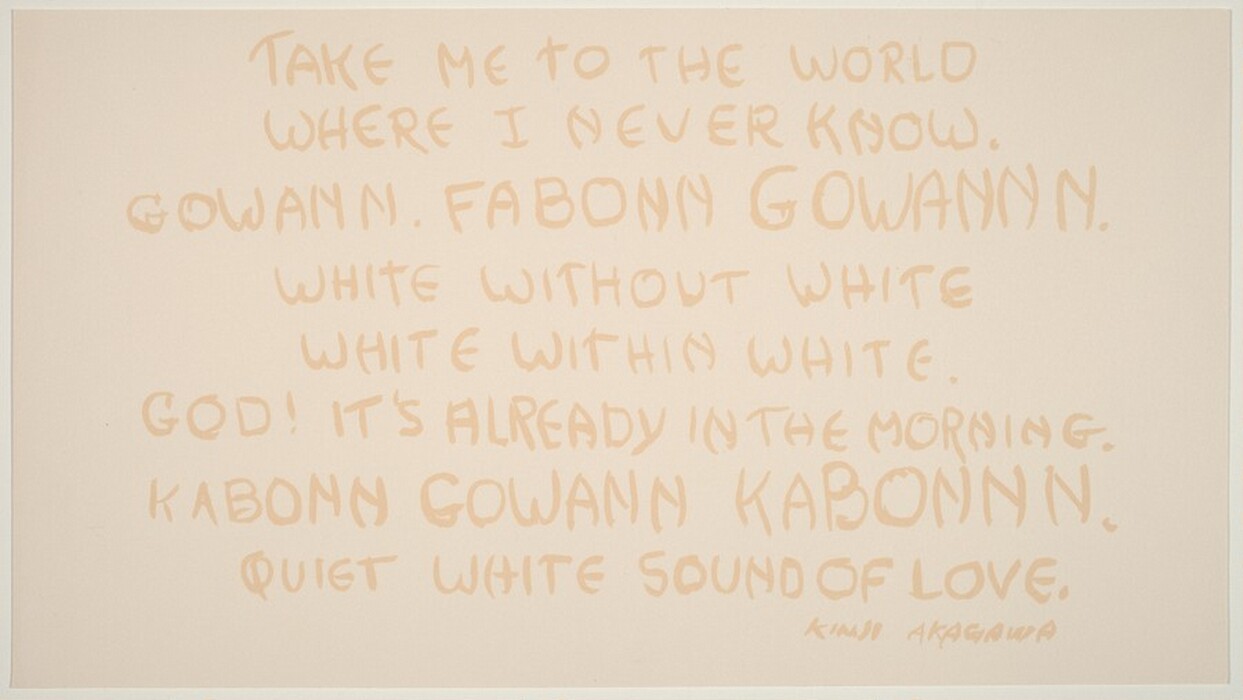 TAKE ME TO THE WORLD
WHERE I NEVER KNOW.
GOWANN. FABONN GOWANNN.
WHITE WITHOUT WHITE
WHITE WITHIN WHITE.
GOD! IT'S ALREADY IN THE MORNING.
KABONN GOWANN KABONNN.
QUIET WHITE SOUND OF LOVE.
KINJI AKAGAWA